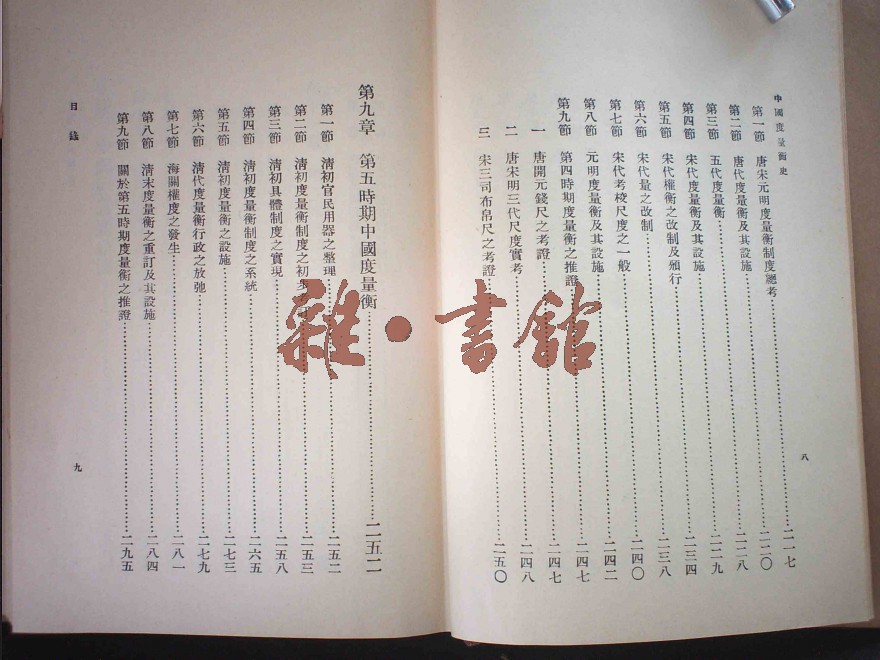 中國度量衡史
第一節 唐宋元明度量衡制度總考……二一七
第二節 唐代度量衡及其設施……二二〇
第三節 五代度量衡……二二八
第四節 宋代度量衡及其設施……二二九
第五節 宋代權衡之改制及頒行……二三四
第六節 宋代量之改制……二三八
第七節 宋代考校尺度之一般……二四〇
第八節 元明度量衡及其設施……二四二
第九節 第四時期度量衡之推證……二四七
一 唐開元錢尺之考證……二四七
二 唐宋明三代尺度實考……二四八
三 宋三司布帛尺之考證……二五〇
八
第九章 第五時期中國度量衡……二五二
第一節 清初官民用器之整理……二五二
第二節 清初度量衡制度之初……二五三
第三節 清初具體制度之實現……二五八
第四節 清初度量衡制度之系統……二六五
第五節 清初度量衡之設施……二七三
第六節 清代度量衡行政之放弛……二七九
第七節 海關權度之發生……二八一
第八節 清末度量衡之重訂及其設施……二八四
第九節 關於第五時期度量衡之推證……二九五
目錄
九
雜·書館